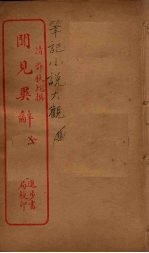 筆記小說大觀
清許秋垞撰
聞見異辭
進步書
局校印